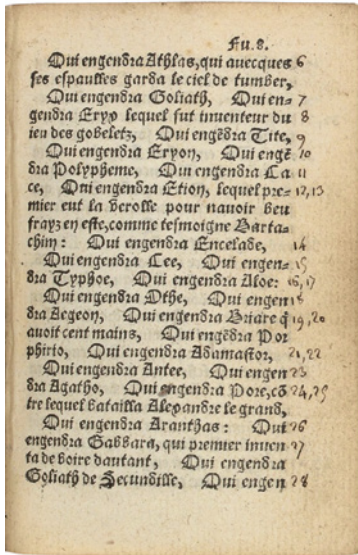 Fu.8.
Qui engendra Athlas, qui auecques 6
ses espaulles garda le ciel de tumber,
Qui engendra Goliath, Qui en= 7
gendra Eryx lequel fut inuenteur du 8
ieu des gobeletz, Qui engēdra Tite, 9
Qui engendra Eryon, Qui engē 10
dra Polypheme, Qui engendra Ca 11
ce, Qui engendra Etion, lequel pre= 12,13
mier eut la verolle pour nauoir beu
frayz en este, comme tesmoigne Barta=
chim: Qui engendra Encelade, 14
Qui engendra Cee, Qui engen= 15
dra Typhoe, Qui engendra Aloe: 16,17
Qui engendra Othe, Qui engen 18
dra Aegeon, Qui engendra Briare q̄ 19,20
auoit cent mains, Qui engēdra Por
phirio, Qui engendra Adamastor, 21,22
Qui engendra Antee, Qui engen 23
dra Agatho, Qui engendra Pore, cō 24,25
tre lequel batailla Alexandre le grand,
Qui engendra Aranthas: Qui 26
engendra Gabbara, qui premier inuen 27
ta de boire dautant, Qui engendra
Goliath de Secundille, Qui engen 28